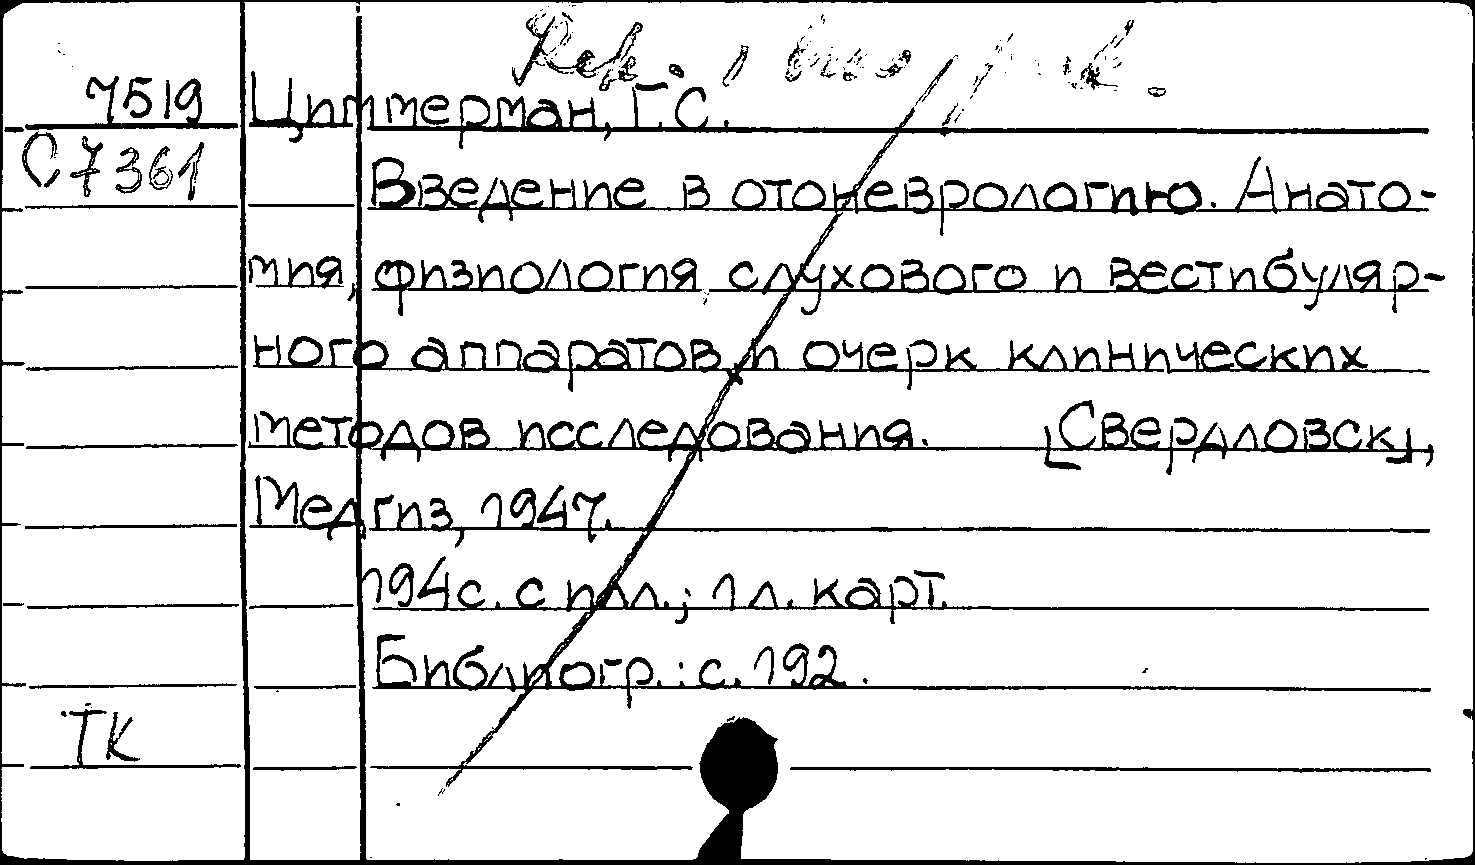 7519 Циммерман, Г.С.
С7361
Введение в отоневрологию. Анато-
мия, физиология слухового и вестибуляр-
ного аппаратов и очерк клинических
методов исследования. [Свердловск],
Медгиз, 1947.
194с. с илл.; 1 л. карт.
Библиогр.: с. 192.
ТК